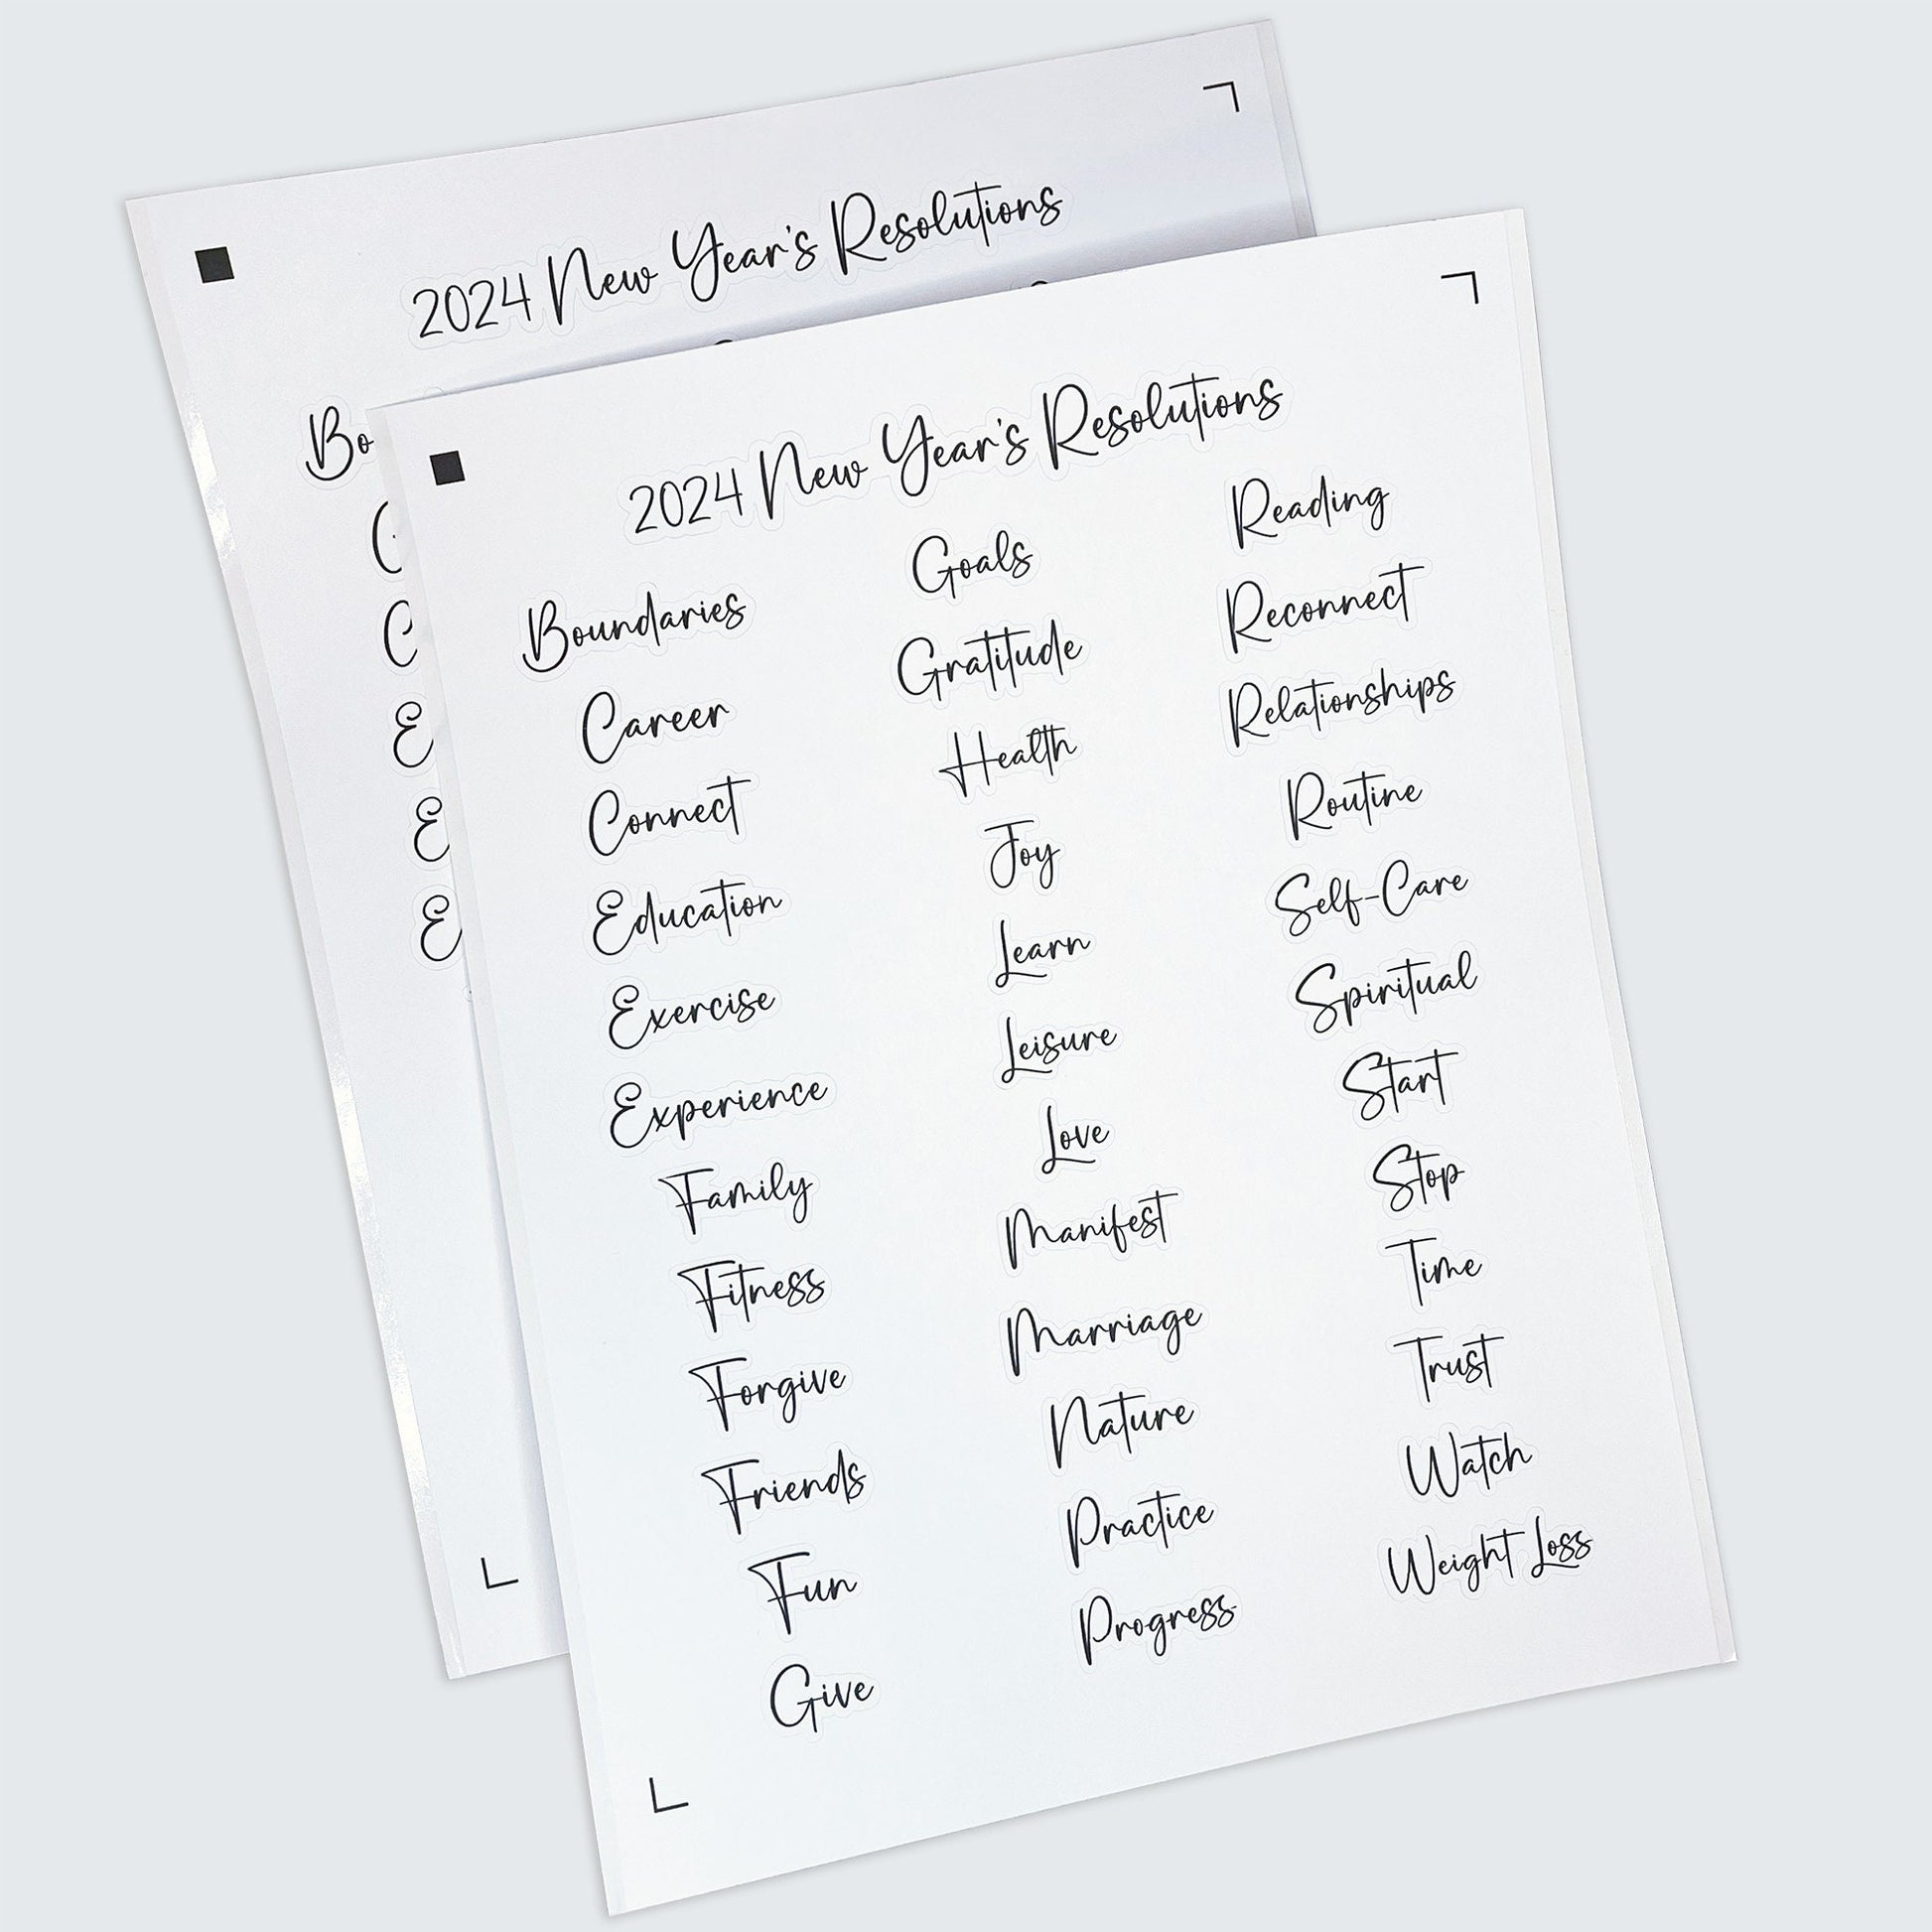 2024 New Year's Resolutions
Bo
C
C
E
E
E
2024 New Year's Resolutions
Boundaries
Career
Connect
Education
Exercise
Experience
Family
Fitness
Forgive
Friends
Fun
Give
Goals
Gratitude
Health
Joy
Learn
Leisure
Love
Manifest
Marriage
Nature
Practice
Progress
Reading
Reconnect
Relationships
Routine
Self-Care
Spiritual
Start
Stop
Time
Trust
Watch
Weight Loss